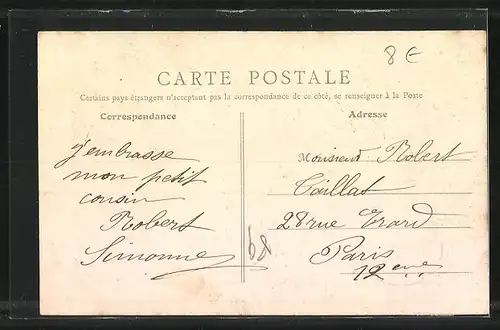 8€
CARTE POSTALE
Certains pays étrangers n'acceptent pas la correspondance de ce côté, se renseigner à la Poste
Correspondance
Adresse
J'embrasse
mon petit
cousin
Robert
Simonne
68
Monsieur Robert
Taillat
28 rue Erard
Paris
12eme